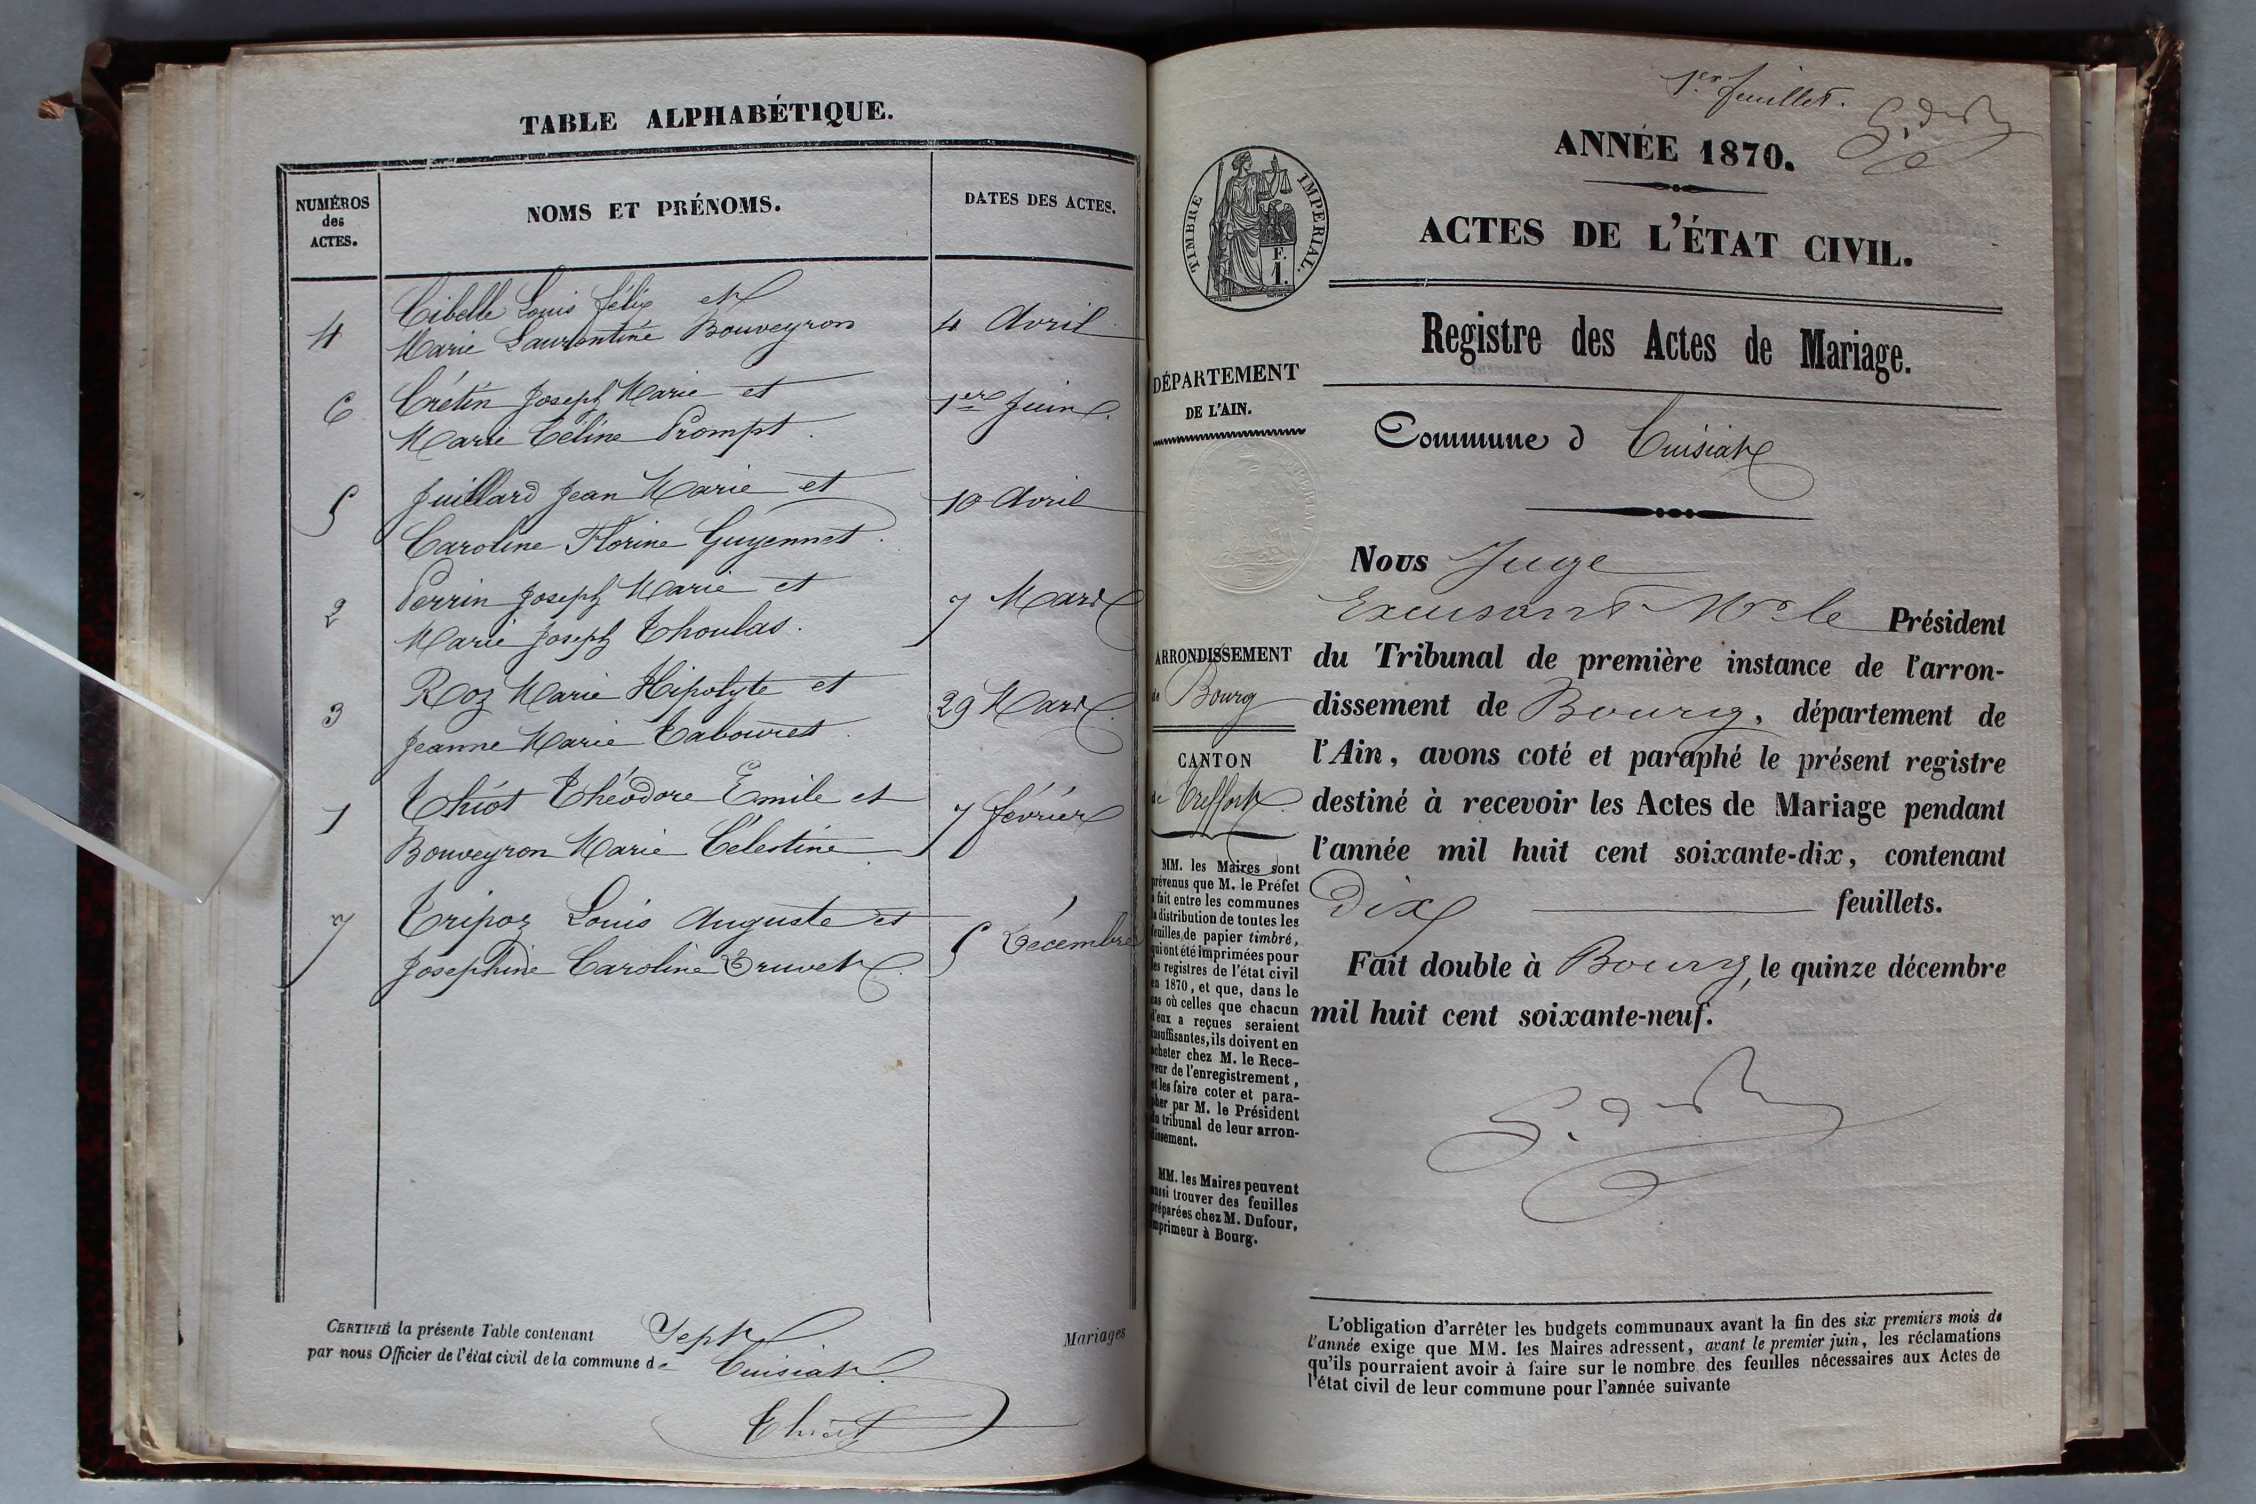 TABLE ALPHABÉTIQUE.
NUMÉROS
des
ACTES.
NOMS ET PRÉNOMS.
DATES DES ACTES.
4
Cibelle Louis félix et
Marie Laurentine Bouveyron
4 Avril
6
Crétin Joseph Marie et
Marie Céline Prompt
1er Juin
5
Juillard Jean Marie et
Caroline Florine Guyennet
10 Avril
2
Perrin Joseph Marie et
Marie Joseph Thoulas.
7 Mars
3
Roz Marie Hipolyte et
Jeanne Marie Tabouret
29 Mars
1
Thiot Théodore Emile et
Bouveyron Marie Célestine
7 février
7
Tripoz Louis Auguste et
Josephine Caroline Druvet
5 Décembre
CERTIFIÉ la présente Table contenant Sept Mariages
par nous Officier de l'état civil de la commune de Cuisiat
Thiot
1er feuillet.
ANNÉE 1870.
TIMBRE IMPERIAL.
F.
1.
ACTES DE L'ÉTAT CIVIL.
Registre des Actes de Mariage.
DÉPARTEMENT
DE L'AIN.
Commune d Cuisiat
ARRONDISSEMENT
de Bourg
CANTON
de Treffort
MM. les Maires sont
prévenus que M. le Préfet
a fait entre les communes
la distribution de toutes les
feuilles de papier timbré,
qui ont été imprimées pour
les registres de l'état civil
en 1870, et que, dans le
cas où celles que chacun
d'eux a reçues seraient
insuffisantes, ils doivent en
acheter chez M. le Rece-
veur de l'enregistrement,
et les faire coter et para-
pher par M. le Président
du tribunal de leur arron-
dissement.
MM. les Maires peuvent
aussi trouver des feuilles
préparées chez M. Dufour,
imprimeur à Bourg.
Nous Juge
Excusant Mr le Président
du Tribunal de première instance de l'arron-
dissement de Bourg, département de
l'Ain, avons coté et paraphé le présent registre
destiné à recevoir les Actes de Mariage pendant
l'année mil huit cent soixante-dix, contenant
Dix feuillets.
Fait double à Bourg, le quinze décembre
mil huit cent soixante-neuf.
L'obligation d'arrêter les budgets communaux avant la fin des six premiers mois de
l'année exige que MM. les Maires adressent, avant le premier juin, les réclamations
qu'ils pourraient avoir à faire sur le nombre des feuilles nécessaires aux Actes de
l'état civil de leur commune pour l'année suivante